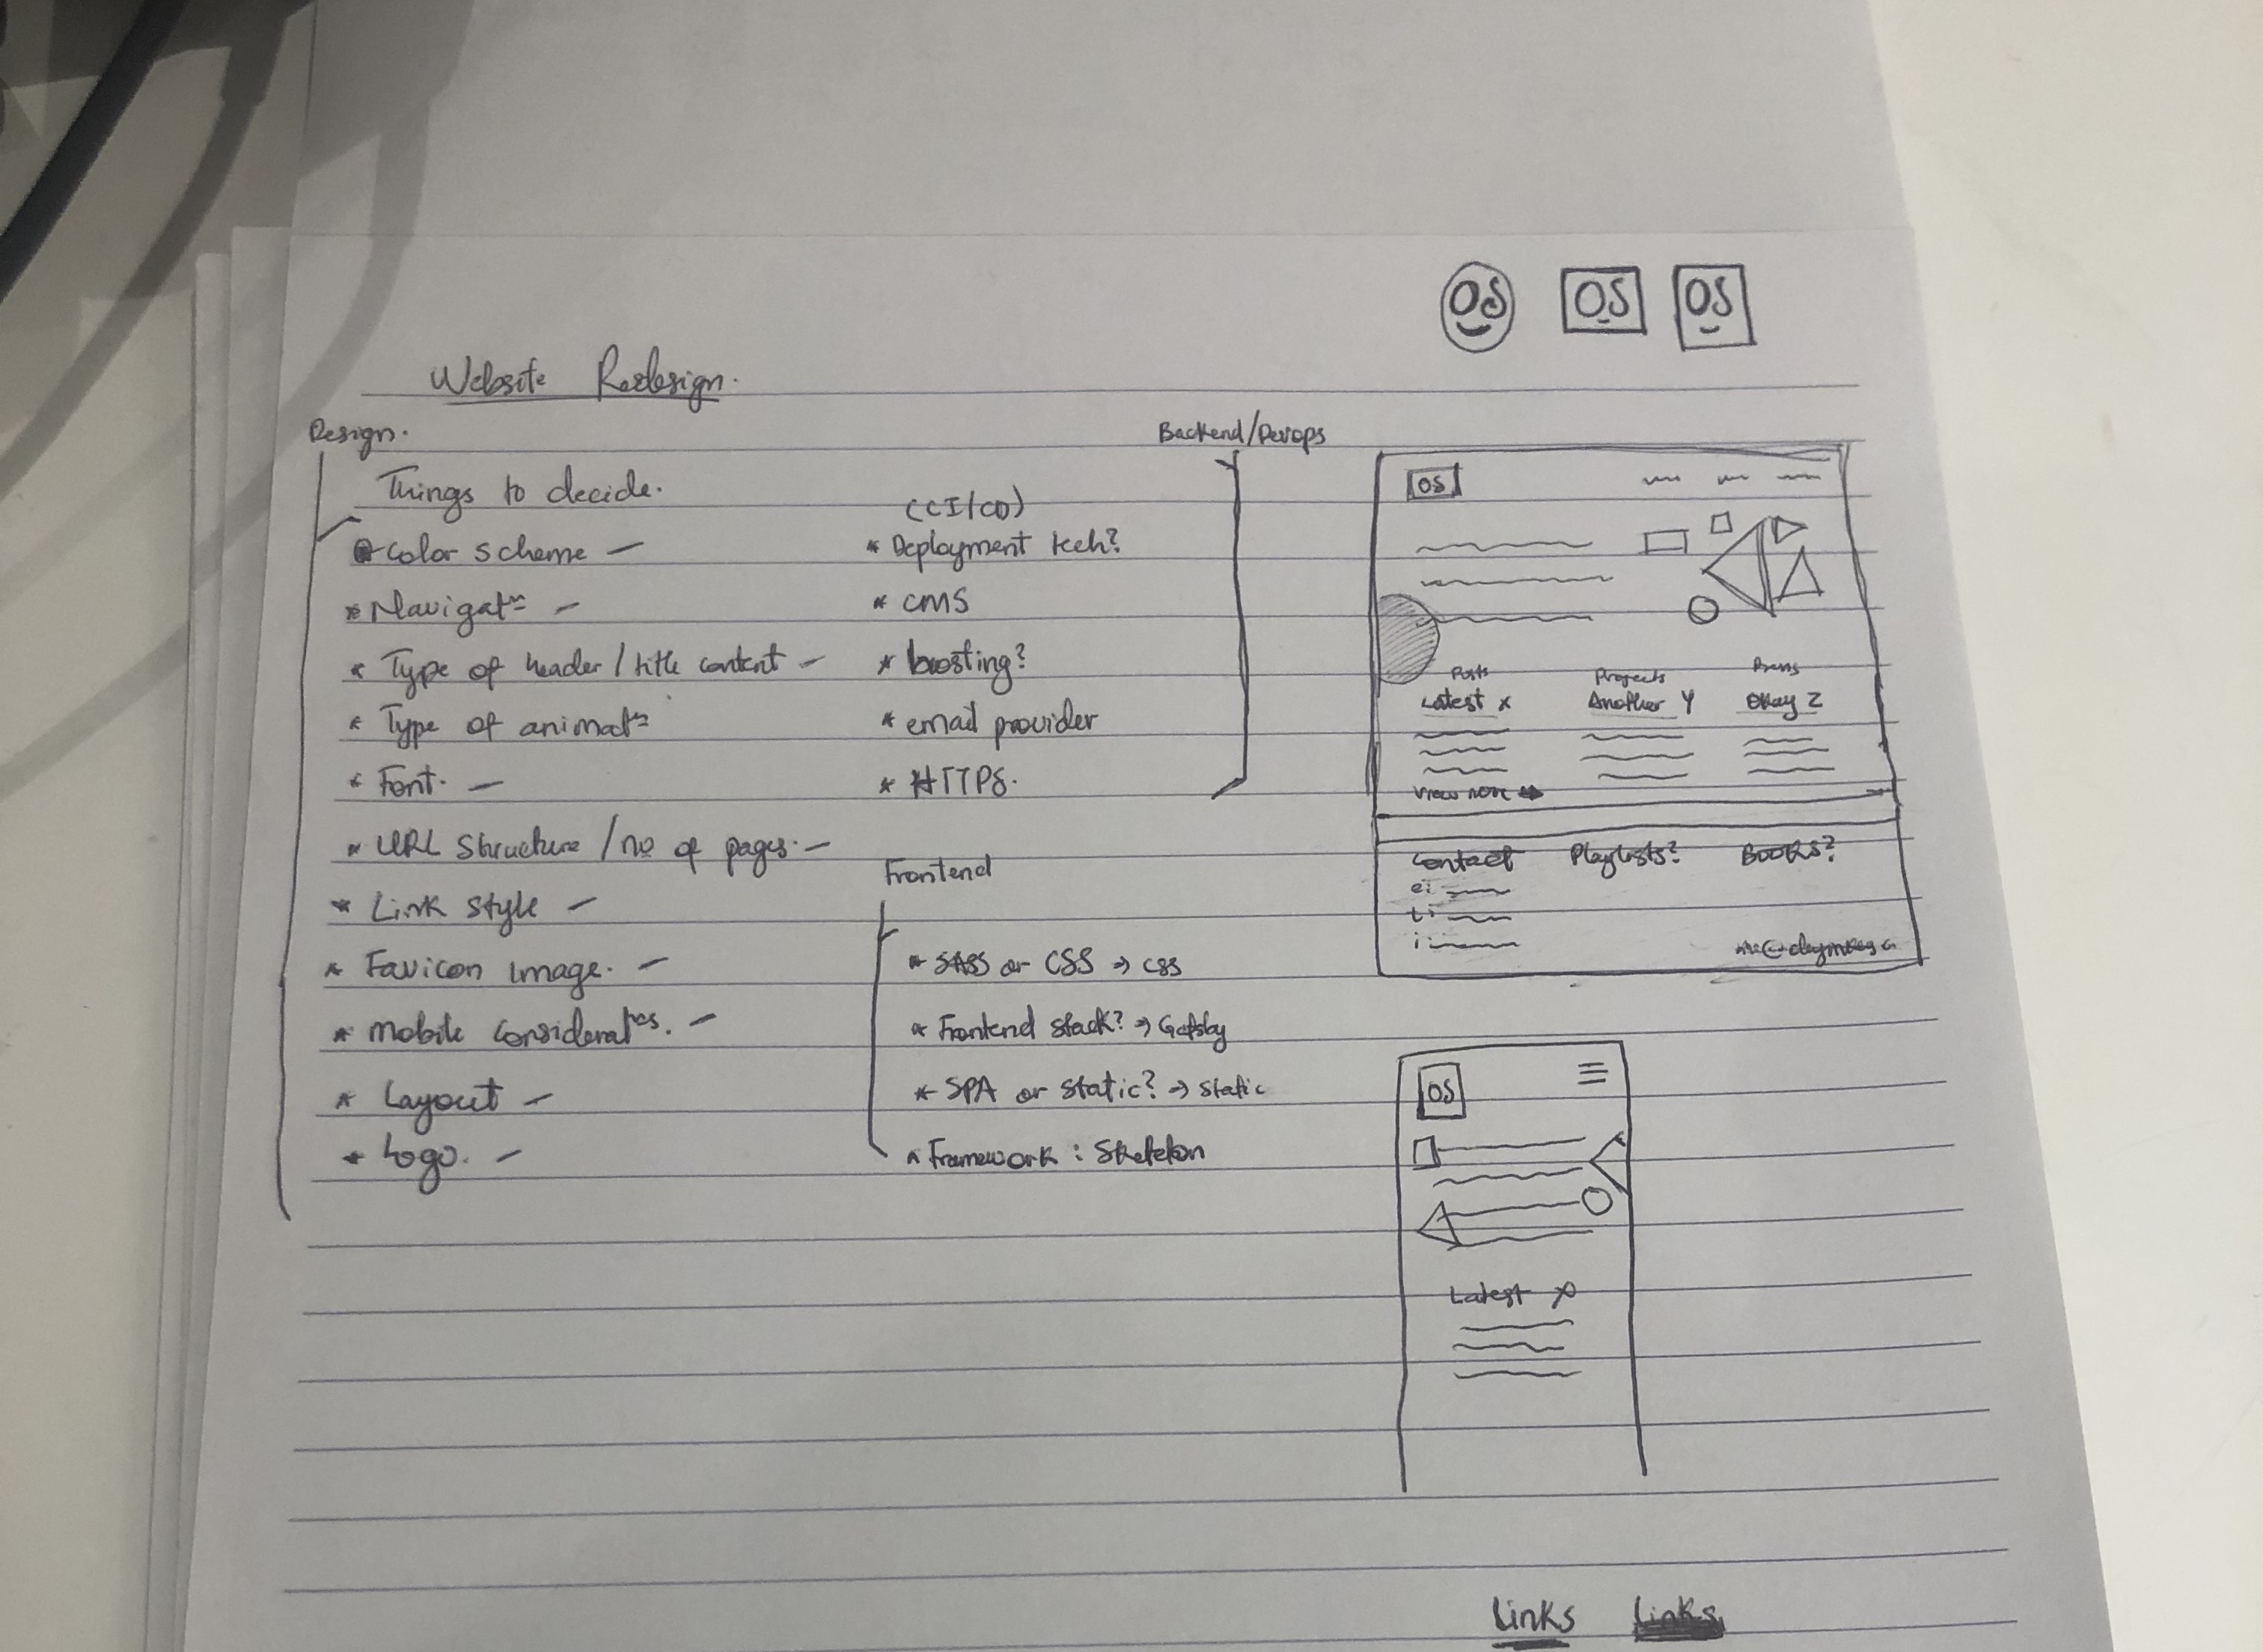 OS OS OS
Website Redesign.
Design.
Things to decide.
color scheme –
* Navigatn –
* Type of header / title content –
* Type of animatn
* Font. –
* URL Structure / no of pages. –
* Link Style –
* Favicon image. –
* Mobile consideratns. –
* Layout –
* Logo. –
Backend/Devops
(CI/CD)
* Deployment tech?
* CMS
* hosting?
* email provider
* HTTPS.
Frontend
* SASS or CSS → css
* Frontend stack? → Gatsby
* SPA or static? → static
* Framework : Skeleton
OS
Posts Projects
Latest x Another Y Okay Z
view more →
Contact Playlists? Books?
e:
t:
i:
OS
Latest x
Links Links